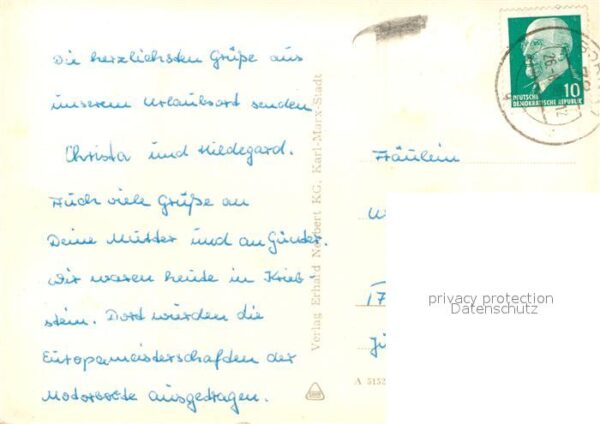 Die herzlichsten Grüße aus
unserem Urlaubsort senden
Christa und Hildegard.
Auch viele Grüße an
Deine Mutter und an Günter.
Wir waren heute in Krieb-
stein. Dort wurden die
Europameisterschaften der
Motorboote ausgetragen.
Verlag Erhard Neubert KG, Karl-Marx-Stadt
A 5152
Fräulein
17
privacy protection
Datenschutz
10
DEUTSCHE
DEMOKRATISCHE REPUBLIK